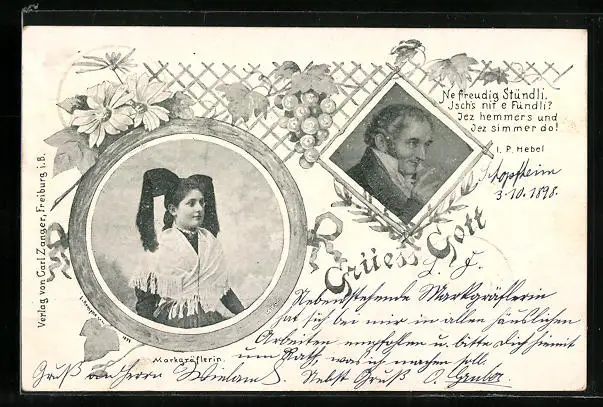 Ne freudig Stündli,
Isch's nit e Fündli?
Jez hemmers und
Jez simmer do!
I. P. Hebel
Schopfheim
3.10.1898.
Grüess Gott
Verlag von Carl Zanger, Freiburg i. B.
Markgräflerin.
Nebenstehende Markgräflerin
hat sich bei mir in allen häuslichen
Arbeiten empfohlen u. bitte Dich hiemit
um Rath, was ich machen soll.
Gruß an Herrn Wieland. Nebst Gruß O. Gruber.